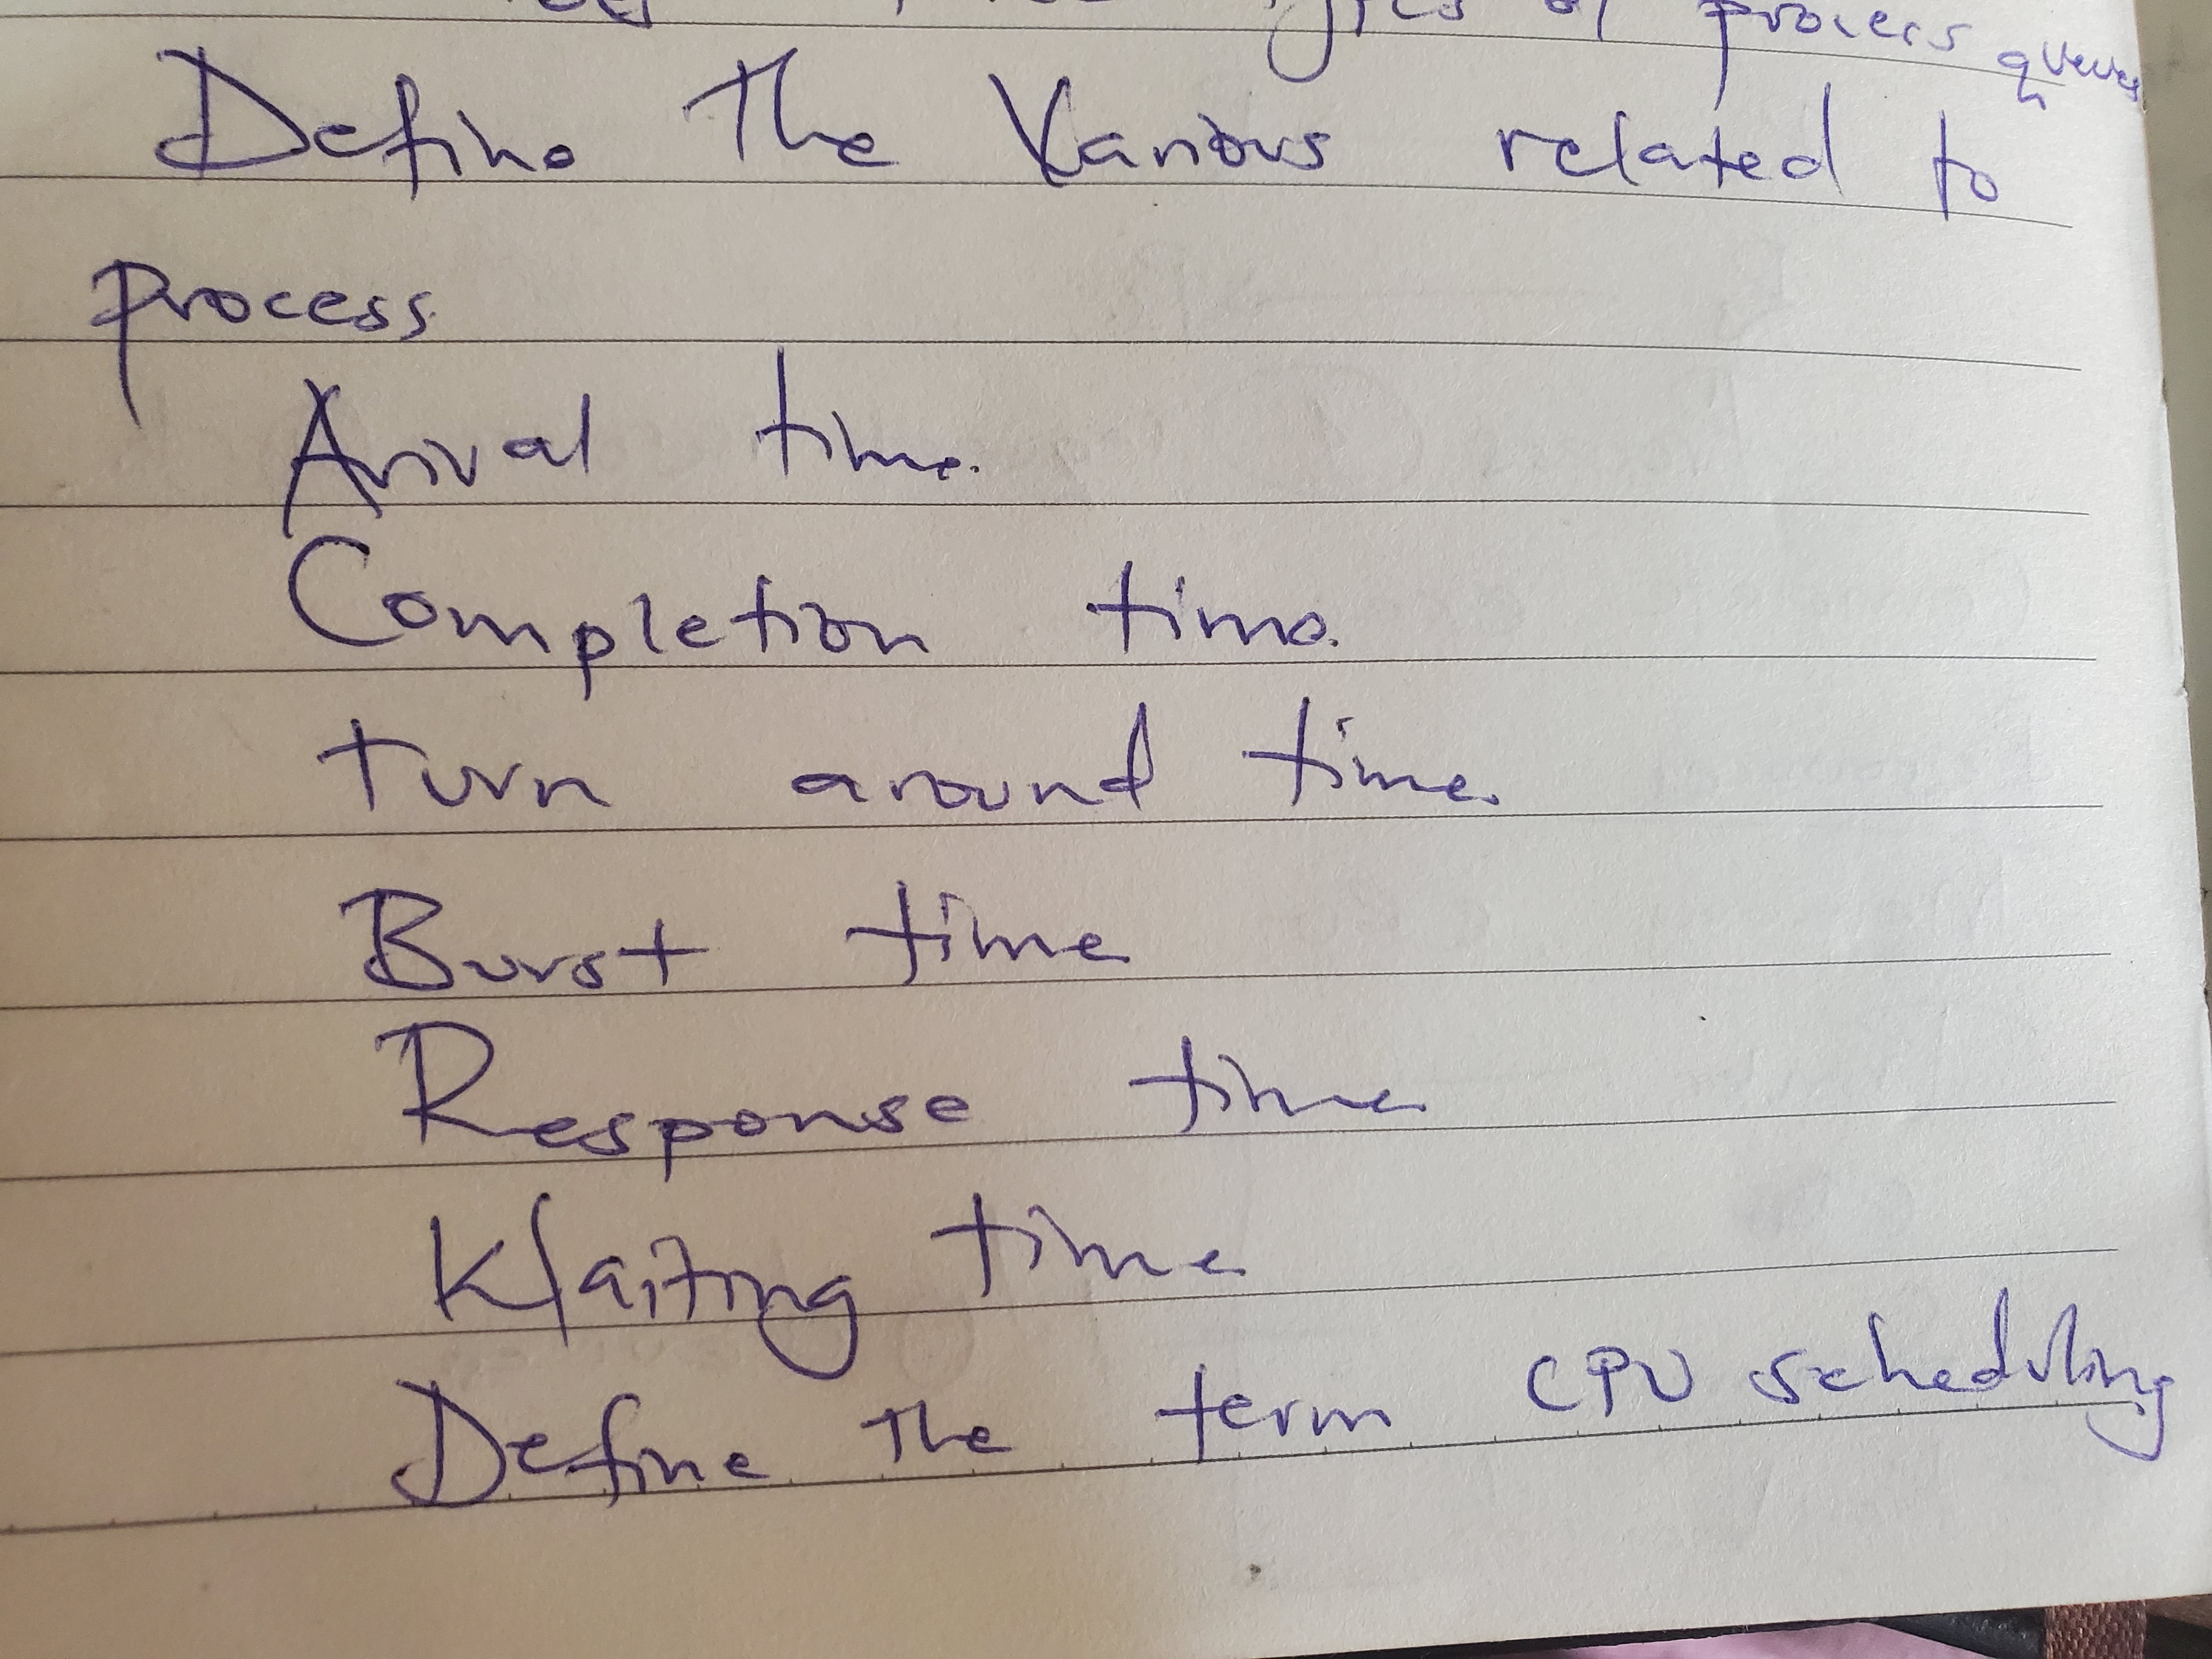 of process queues
Define The Various related to
Process
Arival time.
Completion time.
turn around time.
Burst time
Response time
Waiting time
Define The term CPU scheduling